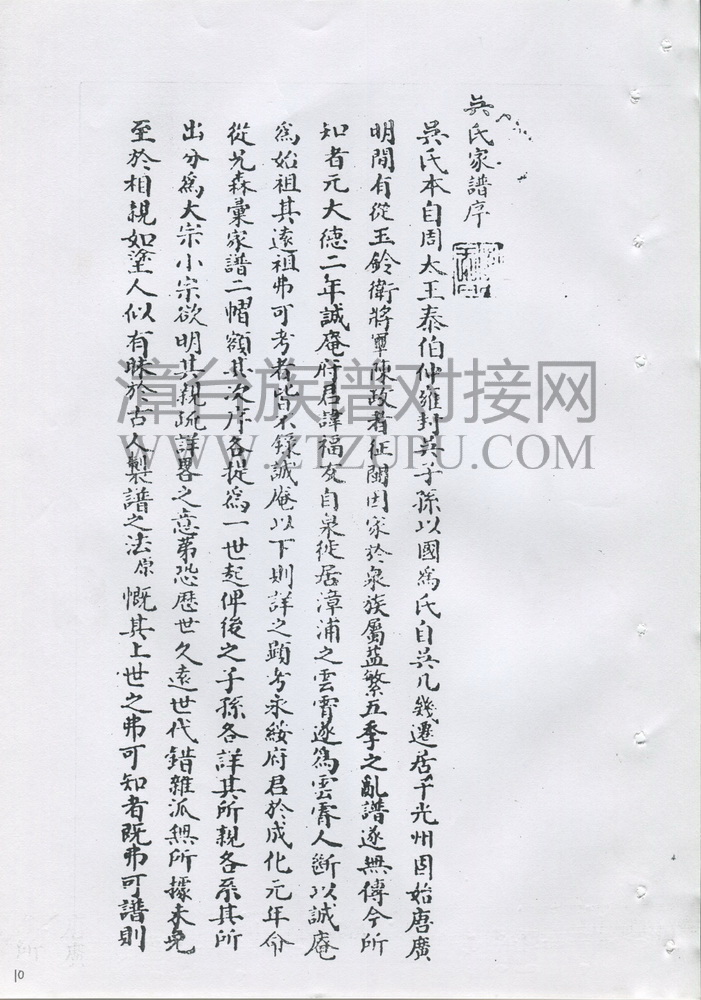 吳氏家譜序
吳氏本自周太王泰伯仲雍封吳子孫以國為氏自吳凡幾遷居于光州固始唐廣
明間有從玉鈐衛將軍陳政者征閩因家於泉族屬益繁五季之亂譜遂無傳今所
知者元大德二年誠庵府君諱福友自泉徙居漳浦之雲霄遂為雲霄人斷以誠庵
為始祖其遠祖弗可考者皆不錄誠庵以下則詳之顯考永綏府君於成化元年命
從兄森彙家譜二帽額其次序各提為一世起俾後之子孫各詳其所親各系其所
出分為大宗小宗欲明其親疏詳畧之意第恐歷世久遠世代錯雜派無所據未免
至於相親如塗人似有昧於古人製譜之法原慨其上世之弗可知者既弗可譜則
漳台族谱对接网
WWW.ZTZUPU.COM
10